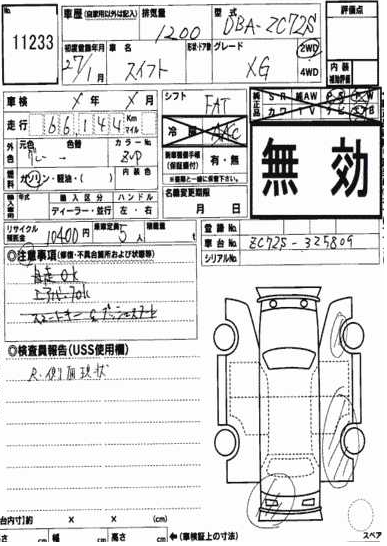 No. 11233
車歴 (自家用以外は記入) 排気量 1200 型式 DBA-ZC72S 評価点
初度登録年月 27/1月 車名 スイフト 形状・ドア数 グレード XG 2WD・4WD 内装補助評価
車検 X年 X月 シフト FAT 純正品 SR 純AW PS PW カワ TV ナビ
走行 66,144 Km マイル 冷房 AAC
外色 元色 グレー → 色替 カラーNo. ZVP 乗車整備手帳(保証書付) 有・無
燃料 ガソリン・軽油・( ) 内装色
無効
輸入車用 年式 輸入区分 ハンドル 名義変更期限
ディーラー・並行 左・右 月 日
リサイクル預託金 10400円 乗車定員 5人 積載量 t
登録No.
車台No. ZC72S-325809
シリアルNo.
◎注意事項(修復・不具合箇所および状態等)
自走OK
エアバッグOK
スマートキー & プッシュスタート
◎検査員報告(USS使用欄)
R.側面現状
台内寸)約 X X (cm)
cm 幅 cm 高さ cm ←(車検証上の寸法) スペア